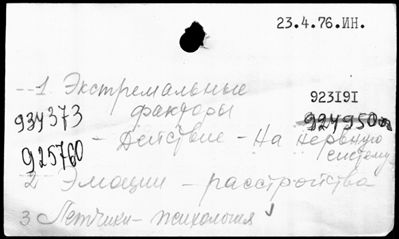 23.4.76.ИН.
--1. Экстремальные
факторы
923191
934373
924950
- Действие - На нервную
систему
925760
2 Эмоции - расстройства
3 Летчики - психология